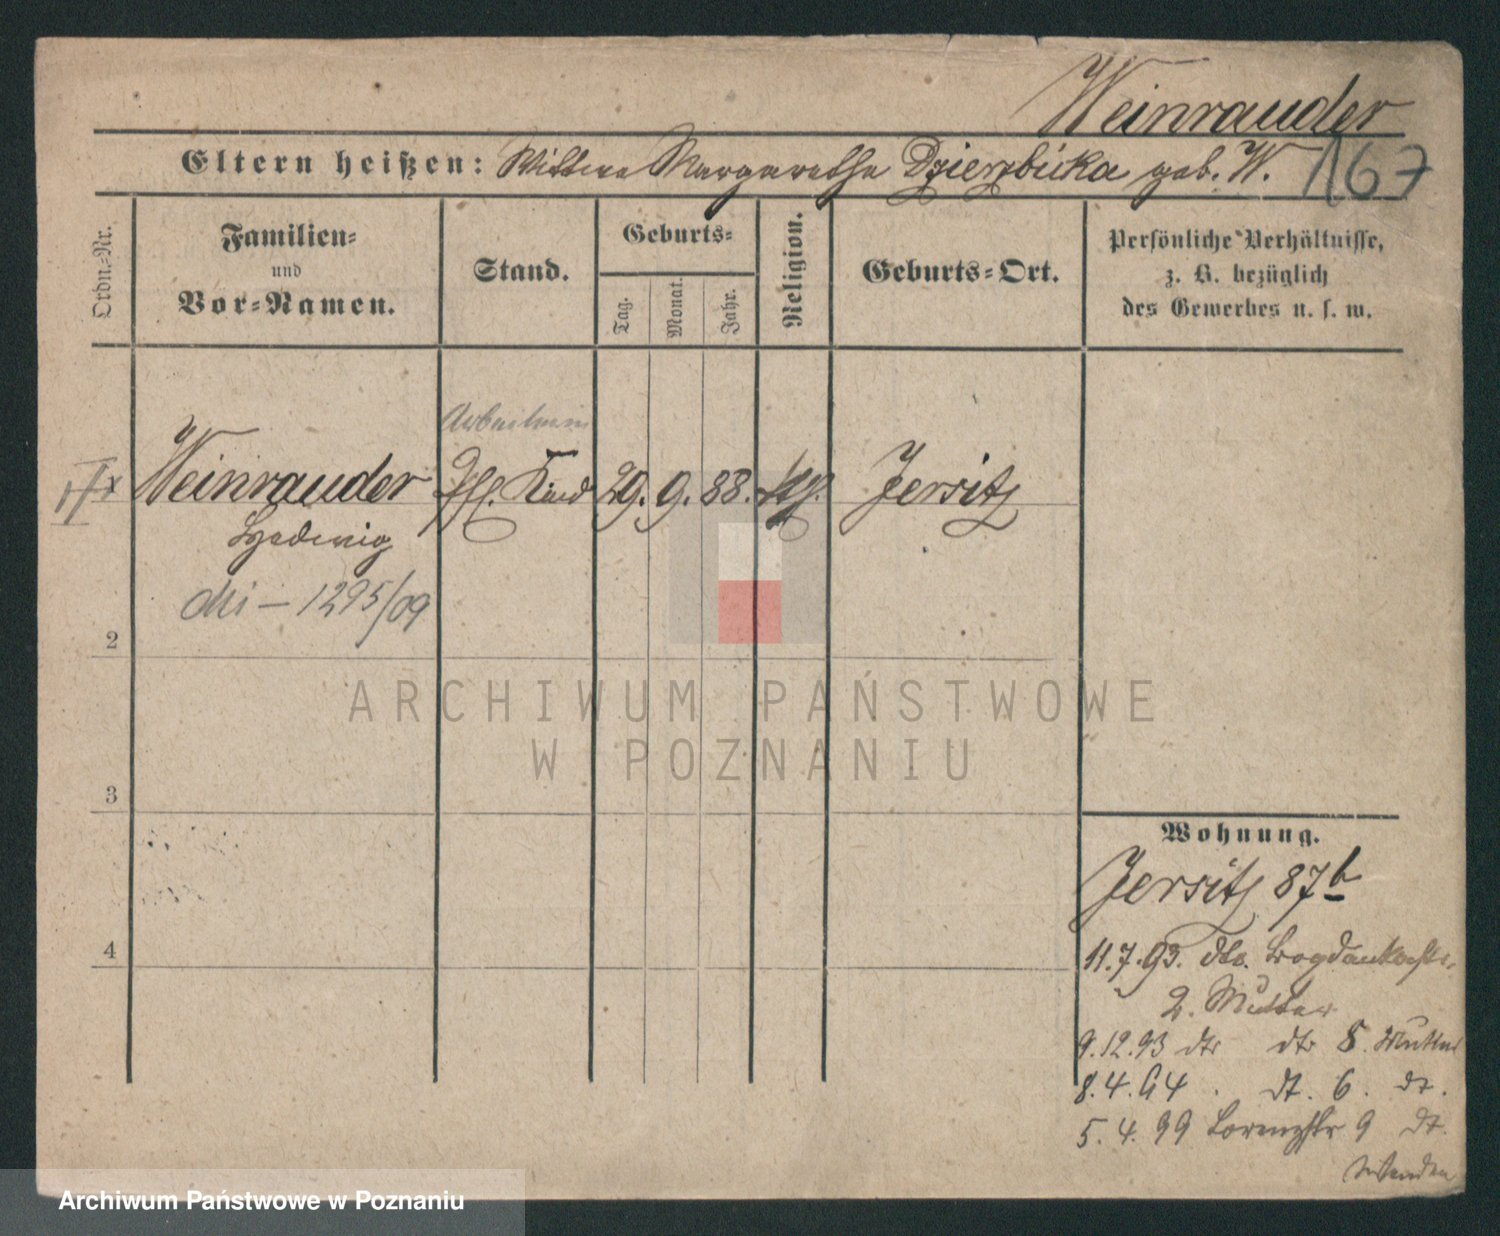 Weinrauder
Eltern heißen: Wittwe Margarethe Dzierzbicka geb. W. 167
Ordn.-Nr.
Familien-
und
Vor-Namen.
Stand.
Geburts-
Tag.
Monat.
Jahr.
Religion.
Geburts-Ort.
Persönliche Verhältnisse,
z. B. bezüglich
des Gewerbes u. s. w.
Arbeiterin
Weinrauder Pfl. Kind 29. 9. 88. Jersitz
Hedwig
1295/09
2
ARCHIWUM PAŃSTWOWE
W POZNANIU
3
Wohnung.
Jersitz 87b
4
11.7.93. dto. Bogdankastr.
2. Mutter
9.12.93 dto dto 8. Mutter
8.4.94 dt. 6. dt.
5.4.99 Lorenzstr 9 dt.
wenden
Archiwum Państwowe w Poznaniu